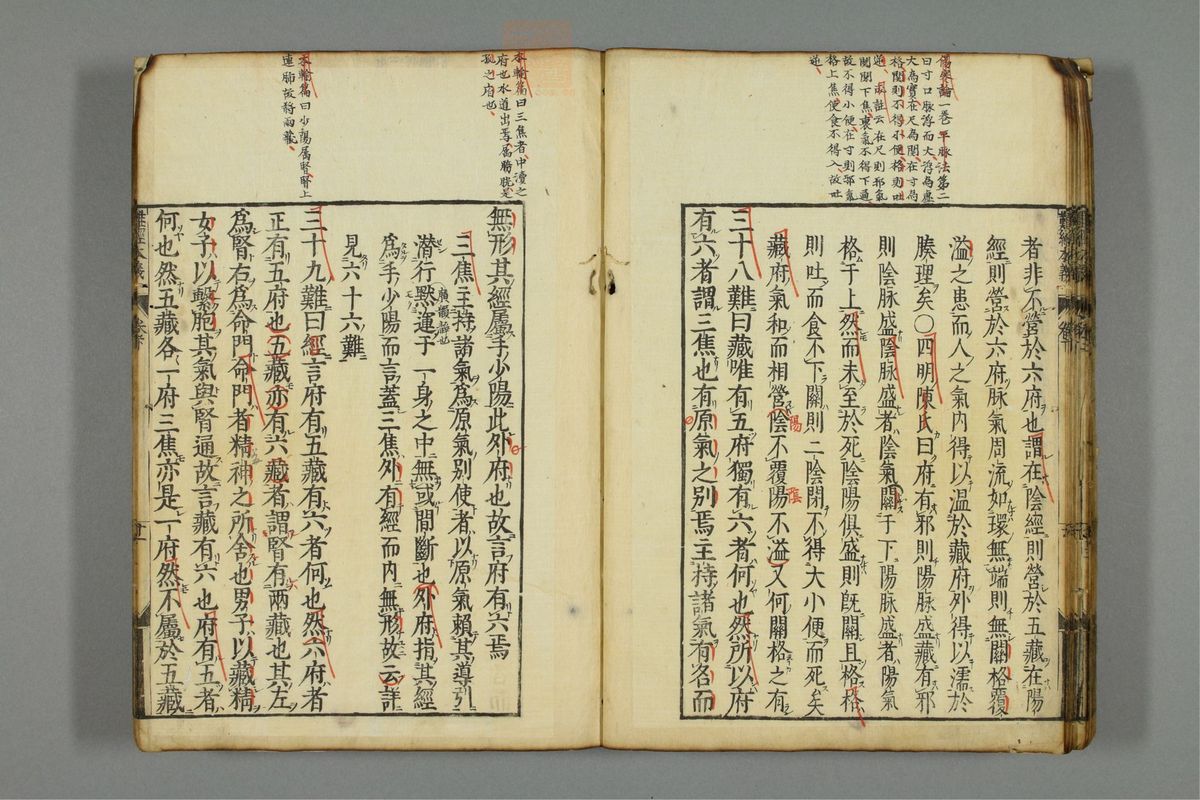 傷寒論一卷平脉法第二
曰寸口脉浮而大浮為虛
大為實在尺為關在寸為
格關則不得小便格則吐
逆
關閉下焦裏氣不得下通
故不得小便在寸則邪氣
格上焦使食不得入故吐
逆
者非不營於六府也謂在陰經則營於五藏在陽
經則營於六府脉氣周流如環無端則無關格覆
溢之患而人之氣内得以温於藏府外得以濡於
腠理矣〇四明陳氏曰府有邪則陽脉盛藏有邪
則陰脉盛陰脉盛者陰氣關于下陽脉盛者陽氣
格于上然而未至於死陰陽俱盛則既關且格格
則吐而食不下關則二陰閉不得大小便而死矣
藏府氣和而相營陰不覆陽不溢又何關格之有
陽
陰
三十八難曰藏唯有五府獨有六者何也然所以府
有六者謂三焦也有原氣之別焉主持諸氣有名而
本輸篇曰三焦者中瀆之
府也水道出焉屬膀胱是
孤之府也
本輸篇曰少陽屬腎腎上
連肺故將兩藏
無形其經屬手少陽此外府也故言府有六焉
三焦主持諸氣爲原氣別使者以原氣賴其導引
潛行默運于一身之中無或間斷也外府指其經
爲手少陽而言蓋三焦外有經而内無形故云詳
見六十六難
三十九難曰經言府有五藏有六者何也然六府者
正有五府也五藏亦有六藏者謂腎有兩藏也其左
爲腎右爲命門命門者精神之所舍也男子以藏精
女子以繫胞其氣與腎通故言藏有六也府有五者
何也然五藏各一府三焦亦是一府然不屬於五藏
難經本義